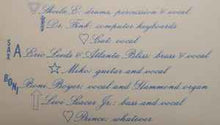 Sheila E: drums, percussion & vocal
Dr. Fink: computer keyboards
Cat: vocal
Eric Leeds & Atlanta Bliss: brass & vocal
Miko: guitar and vocal
Boni Boyer: vocal and Hammond organ
Levi Seacer Jr.: bass and vocal
Prince: whatever